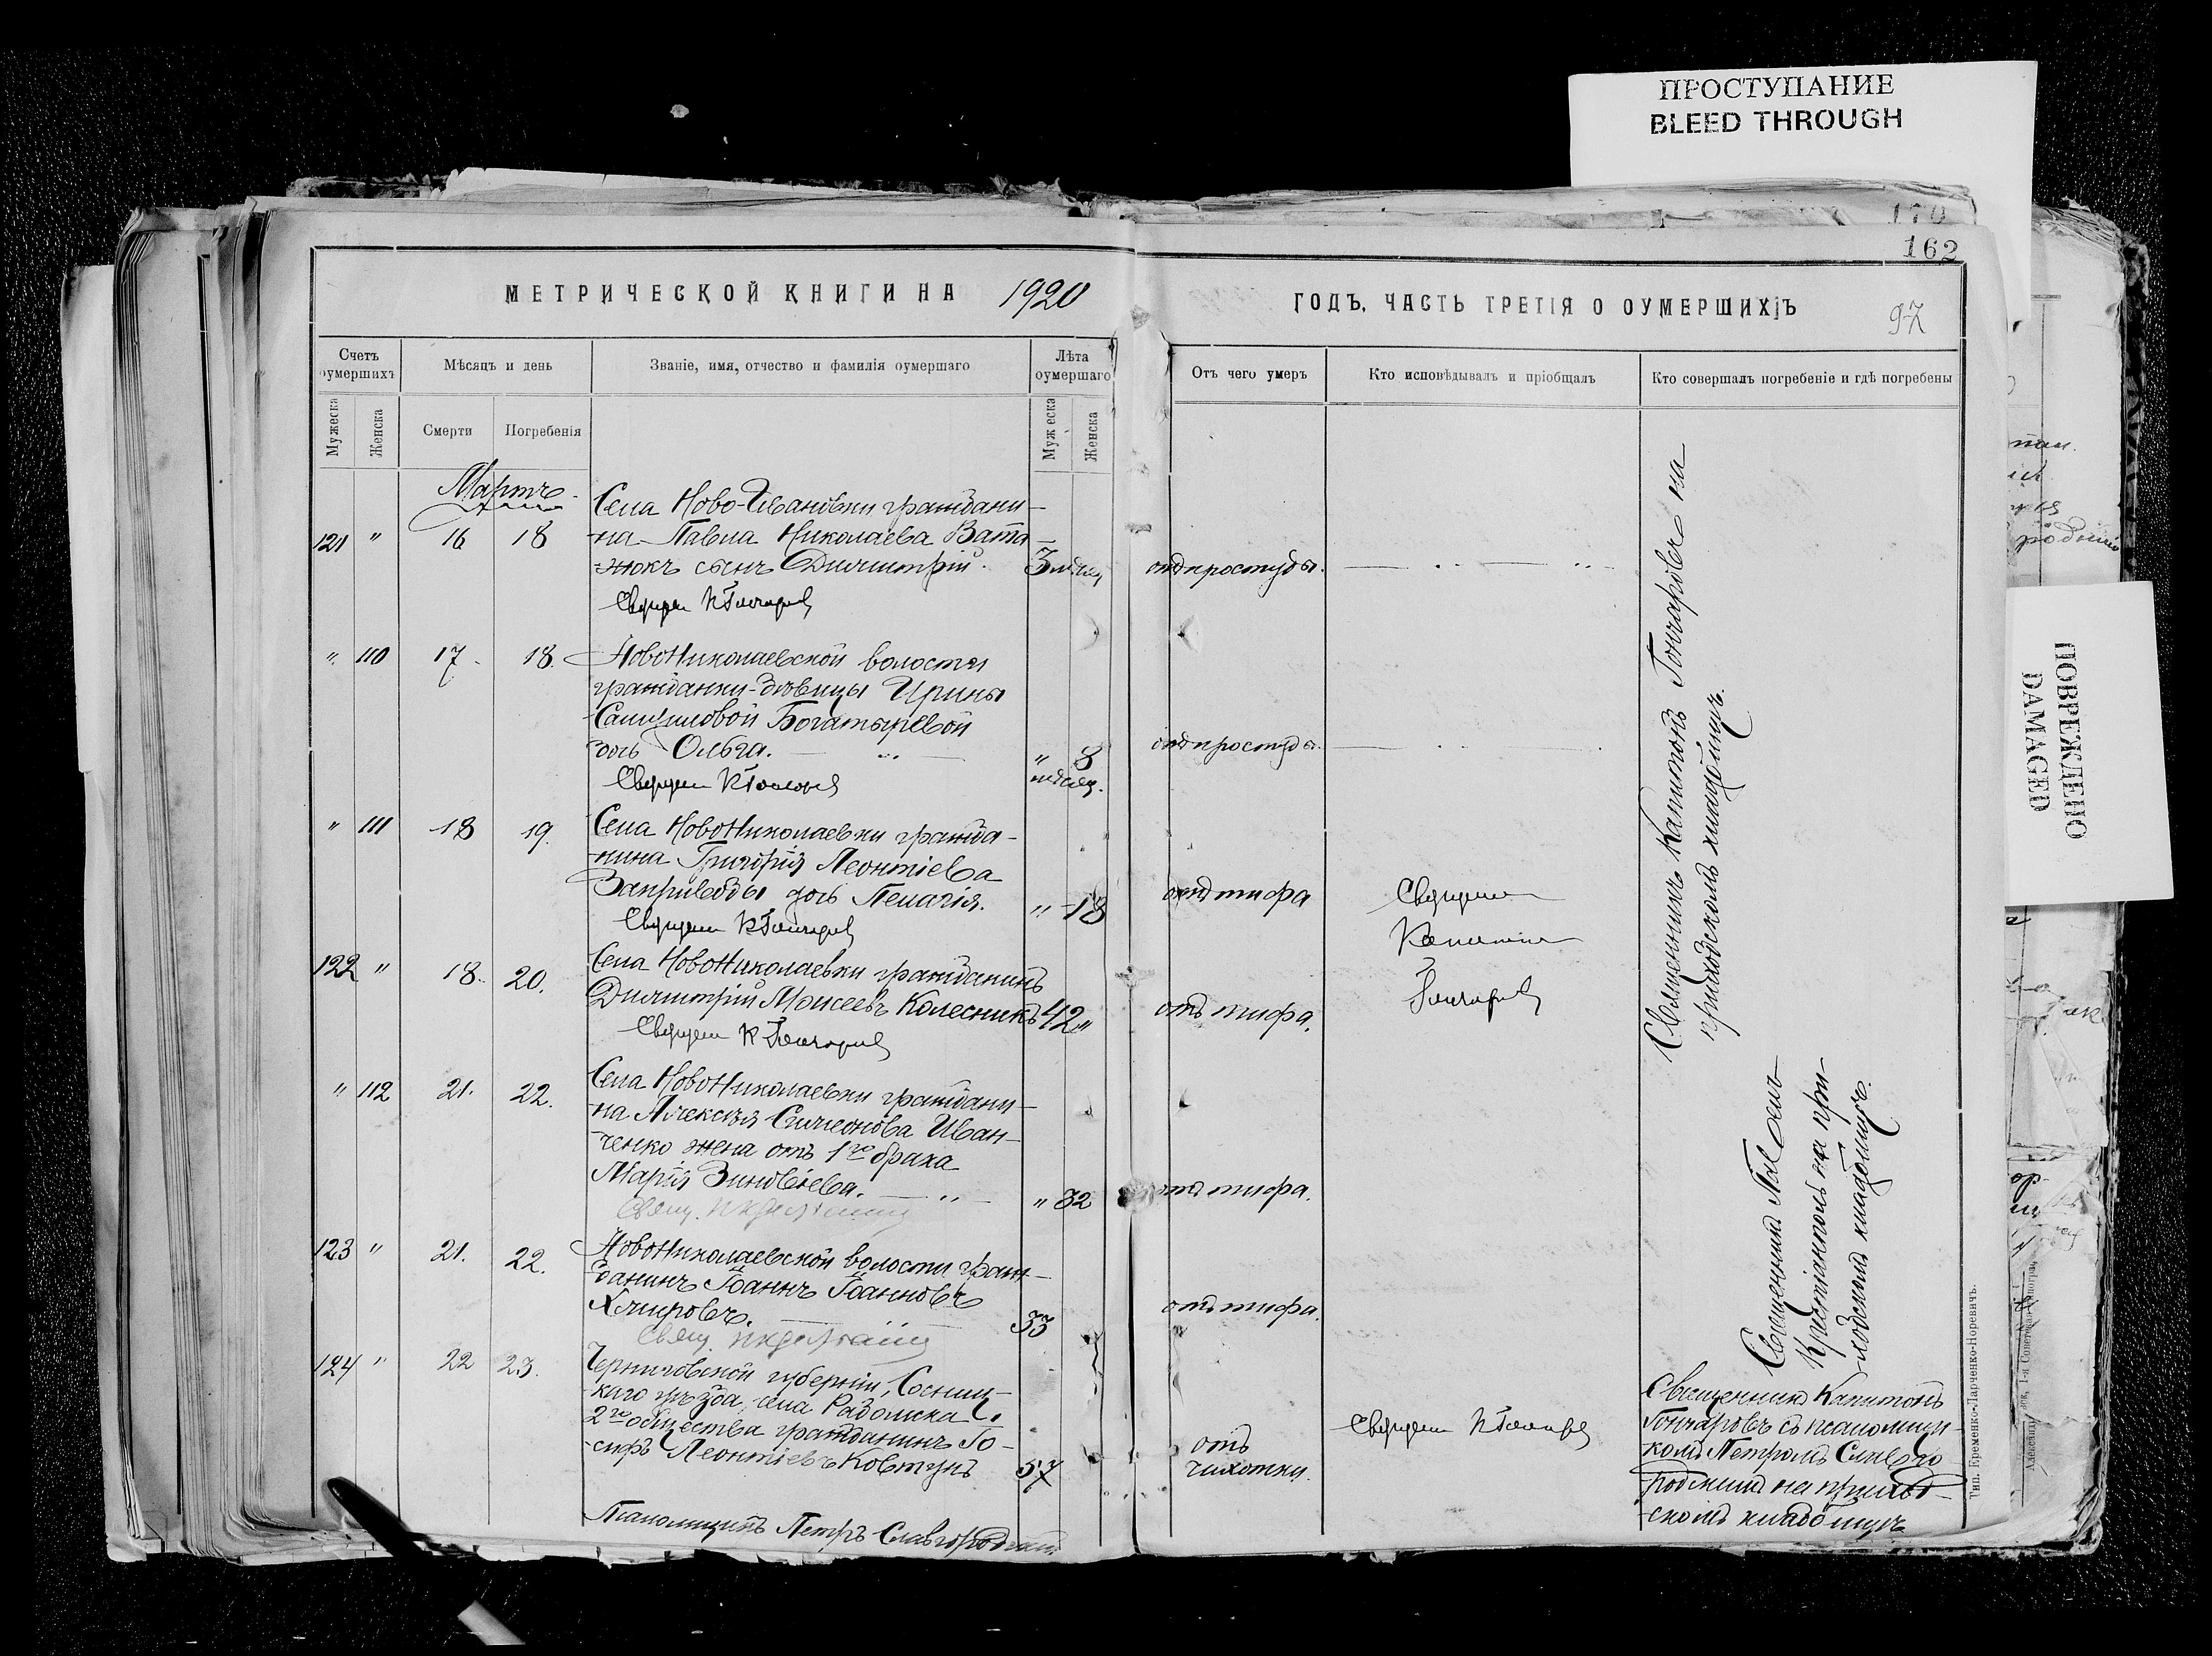 ПРОСТУПАНИЕ
BLEED THROUGH
170
162
МЕТРИЧЕСКОЙ КНИГИ НА 1920
ГОДЪ, ЧАСТЬ ТРЕТІЯ О ОУМЕРШИХЪ
97
Счетъ оумершихъ
Мѣсяцъ и день
Званіе, имя, отчество и фамилія оумершаго
Лѣта оумершаго
Отъ чего умеръ
Кто исповѣдывалъ и пріобщалъ
Кто совершалъ погребеніе и гдѣ погребены
Мужеска
Женска
Смерти
Погребенія
Мужеска
Женска
Мартъ
121 " 16 18
Села Ново-Ивановки граждани-
на Павла Николаева Ватa-
-нюкъ сынъ Димитрій.
3 мѣсяц
отъ простуды.
Священ КГончаровъ
" 110 17. 18.
НовоНиколаевской волости
гражданки-дѣвицы Ирины
Самуиловой Богатыревой
дочь Ольга.
" 8
мѣсяц.
отъ простуды.
Священ КГончаровъ
" 111 18 19.
Села НовоНиколаевки гражда-
нина Григорія Леонтіева
дочь Пелагія.
" 18
отъ тифа
Священ КГончаровъ
Священ
Капитонъ
Гончаровъ
122 " 18. 20.
Села НовоНиколаевки гражданинъ
Димитрій Моисеевъ Колесникъ
42 "
отъ тифа.
Священ К Гончаровъ
" 112 21. 22.
Села НовоНиколаевки граждани-
-на Алексѣя Симеонова Иван-
-ченко жена отъ 1го брака
Марія Зиновіева.
" 32
отъ тифа.
Свящ.
123 " 21. 22.
НовоНиколаевской волости граж-
данинъ Іоаннъ Іоанновъ
33
отъ тифа.
Свящ.
124 " 22 23.
Черниговской губерніи, Сосниц-
каго уѣзда, села Радомска
2го общества гражданинъ Іо-
-сифъ Леонтіевъ Ковтунъ
57
отъ
чихотки.
Священ КГончаровъ
Псаломщикъ Петръ Славгородскій
Священникъ Капитонъ Гончаровъ на
приходскомъ кладбищѣ.
Священникъ Павелъ
Крестіанполь на при-
ходскомъ кладбищѣ.
Священникъ Капитонъ
Гончаровъ съ псаломщи-
комъ Петромъ Славго
родскимъ на приход-
скомъ кладбищѣ
Тип. Еременко-Ларченко-Норевичъ.
ПОВРЕЖДЕНО
DAMAGED